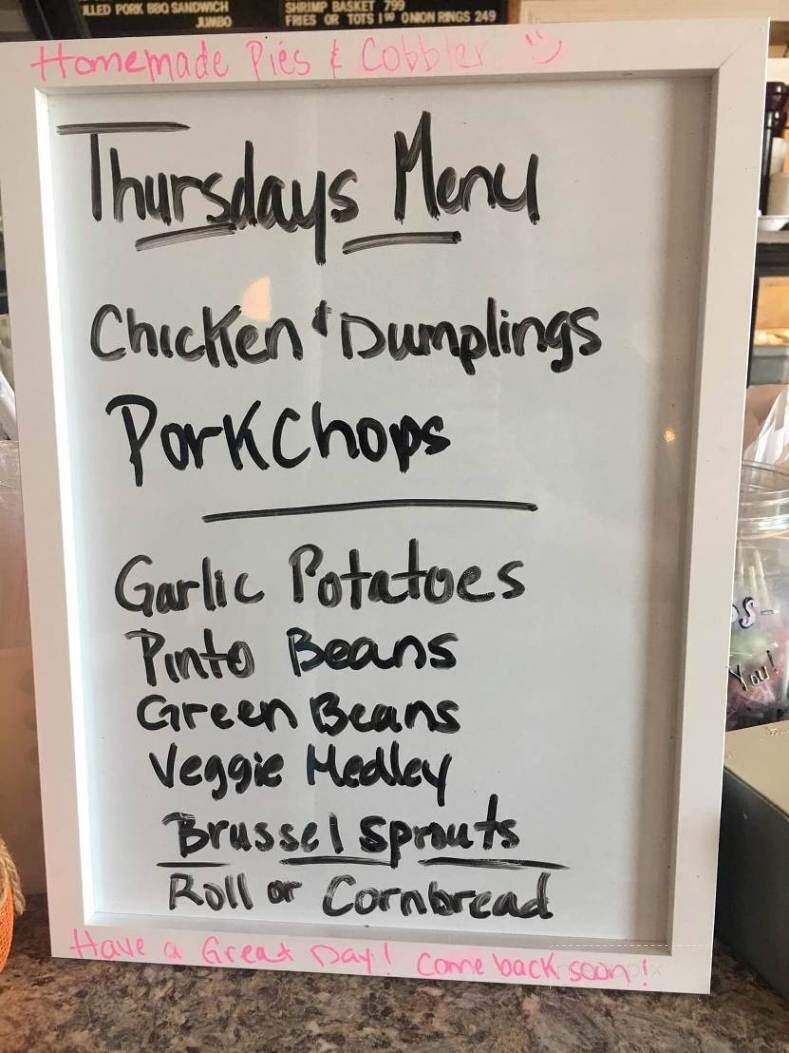 LLED PORK BBQ SANDWICH
JUMBO
SHRIMP BASKET 799
FRIES OR TOTS 1 ONION RINGS 249
Homemade Pies & Cobbler
Thursdays Menu
Chicken & Dumplings
Pork Chops
Garlic Potatoes
Pinto Beans
Green Beans
Veggie Medley
Brussel Sprouts
Roll or Cornbread
Have a Great Day! Come back soon!
You!